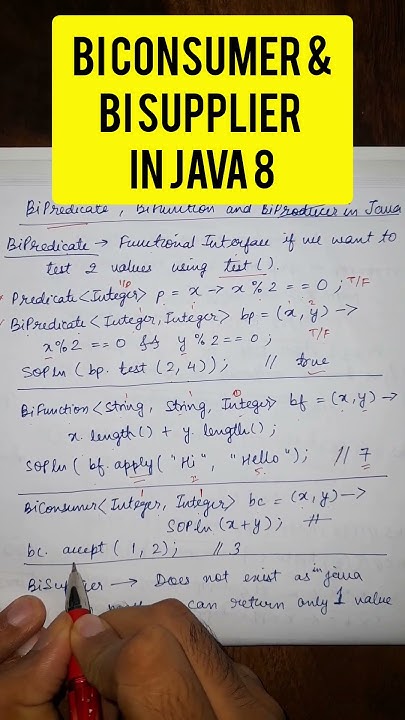 BI CONSUMER &
BI SUPPLIER
IN JAVA 8
BiPredicate, BiFunction and BiProducer in Java
BiPredicate → Functional Interface if we want to
test 2 values using test().
I/P
Predicate<Integer> p = x → x % 2 == 0 ; T/F
1 2
BiPredicate<Integer, Integer> bp = (x, y) →
x % 2 == 0 && y % 2 == 0 ; T/F
SOPln (bp. test (2, 4)); // true
BiFunction<String, String, Integer> bf = (x, y) →
x. length() + y. length();
SOPln ( bf. apply ( "Hi", "Hello"); // 7
2 5
BiConsumer<Integer, Integer> bc = (x, y) →
SOPln (x+y); //
bc. accept ( 1, 2); // 3
BiSupplier → Does not exist as in java
can return only 1 value